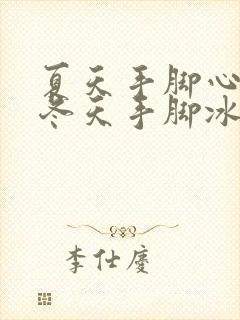 夏天手脚心
冬天手脚冰
李仕庆